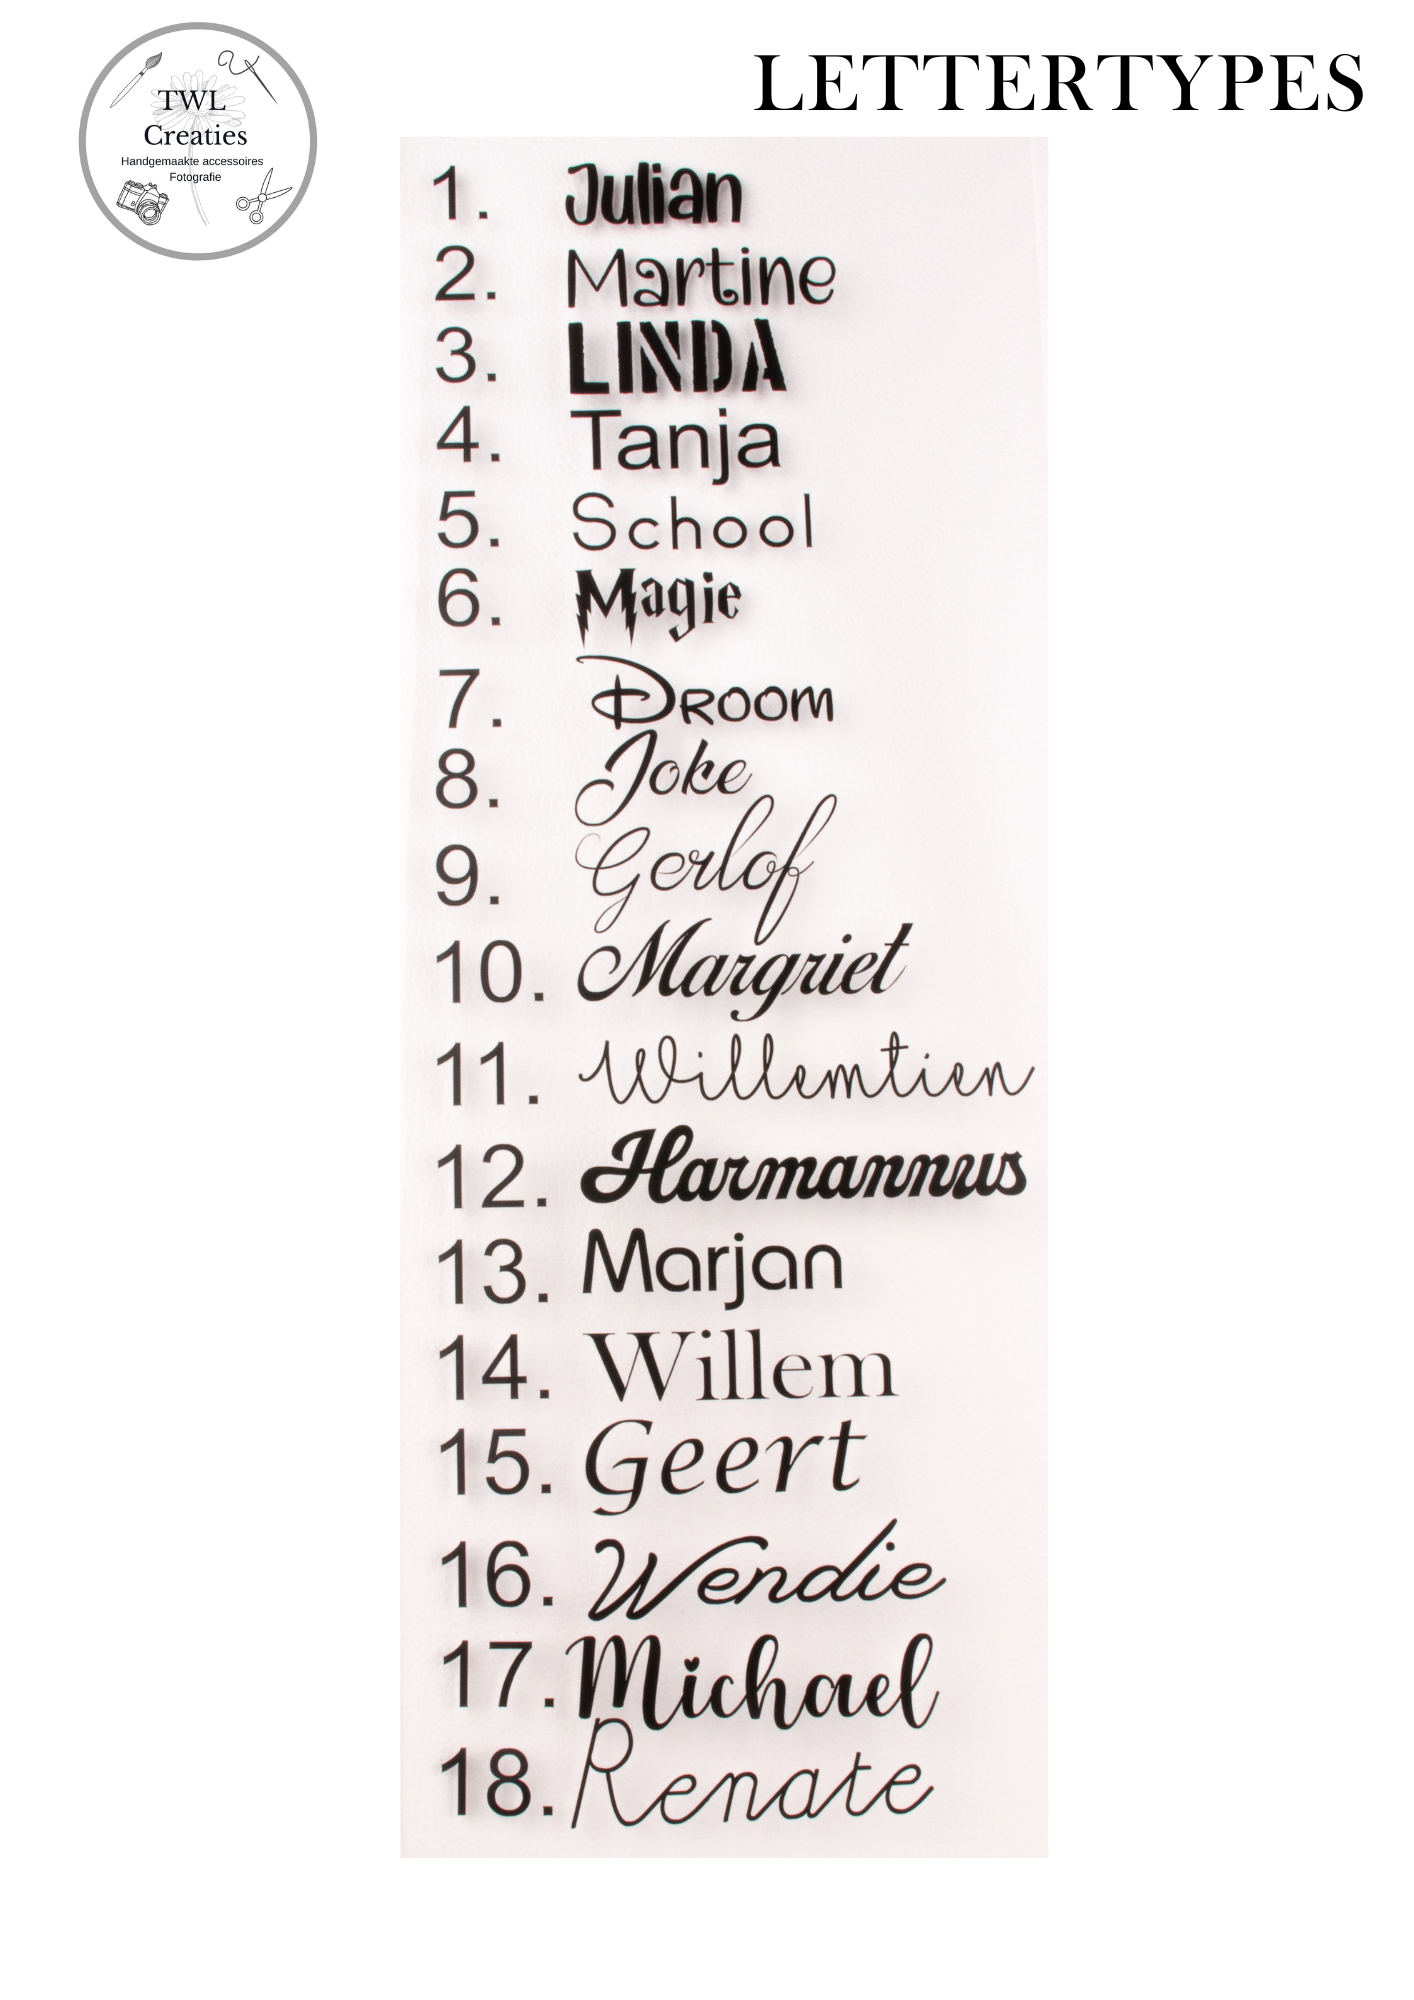 TWL
Creaties
Handgemaakte accessoires
Fotografie
LETTERTYPES
1. Julian
2. Martine
3. LINDA
4. Tanja
5. School
6. Magie
7. DROOM
8. Joke
9. Gerlof
10. Margriet
11. Willemtien
12. Harmannus
13. Marjan
14. Willem
15. Geert
16. Wendie
17. Michael
18. Renate